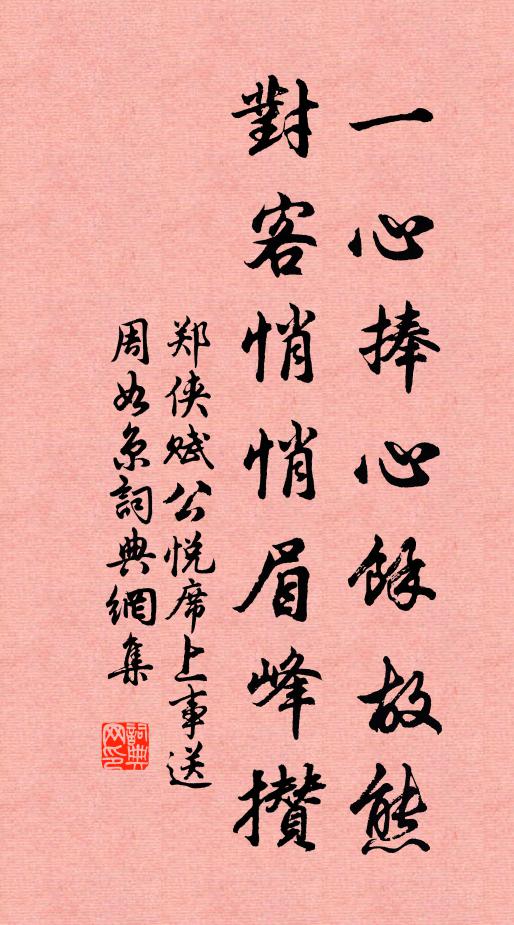 一心捧心餘故態
對客悄悄眉峰攢
郑侠赋公悦席上事送
周如京詞典網集
詞典網印